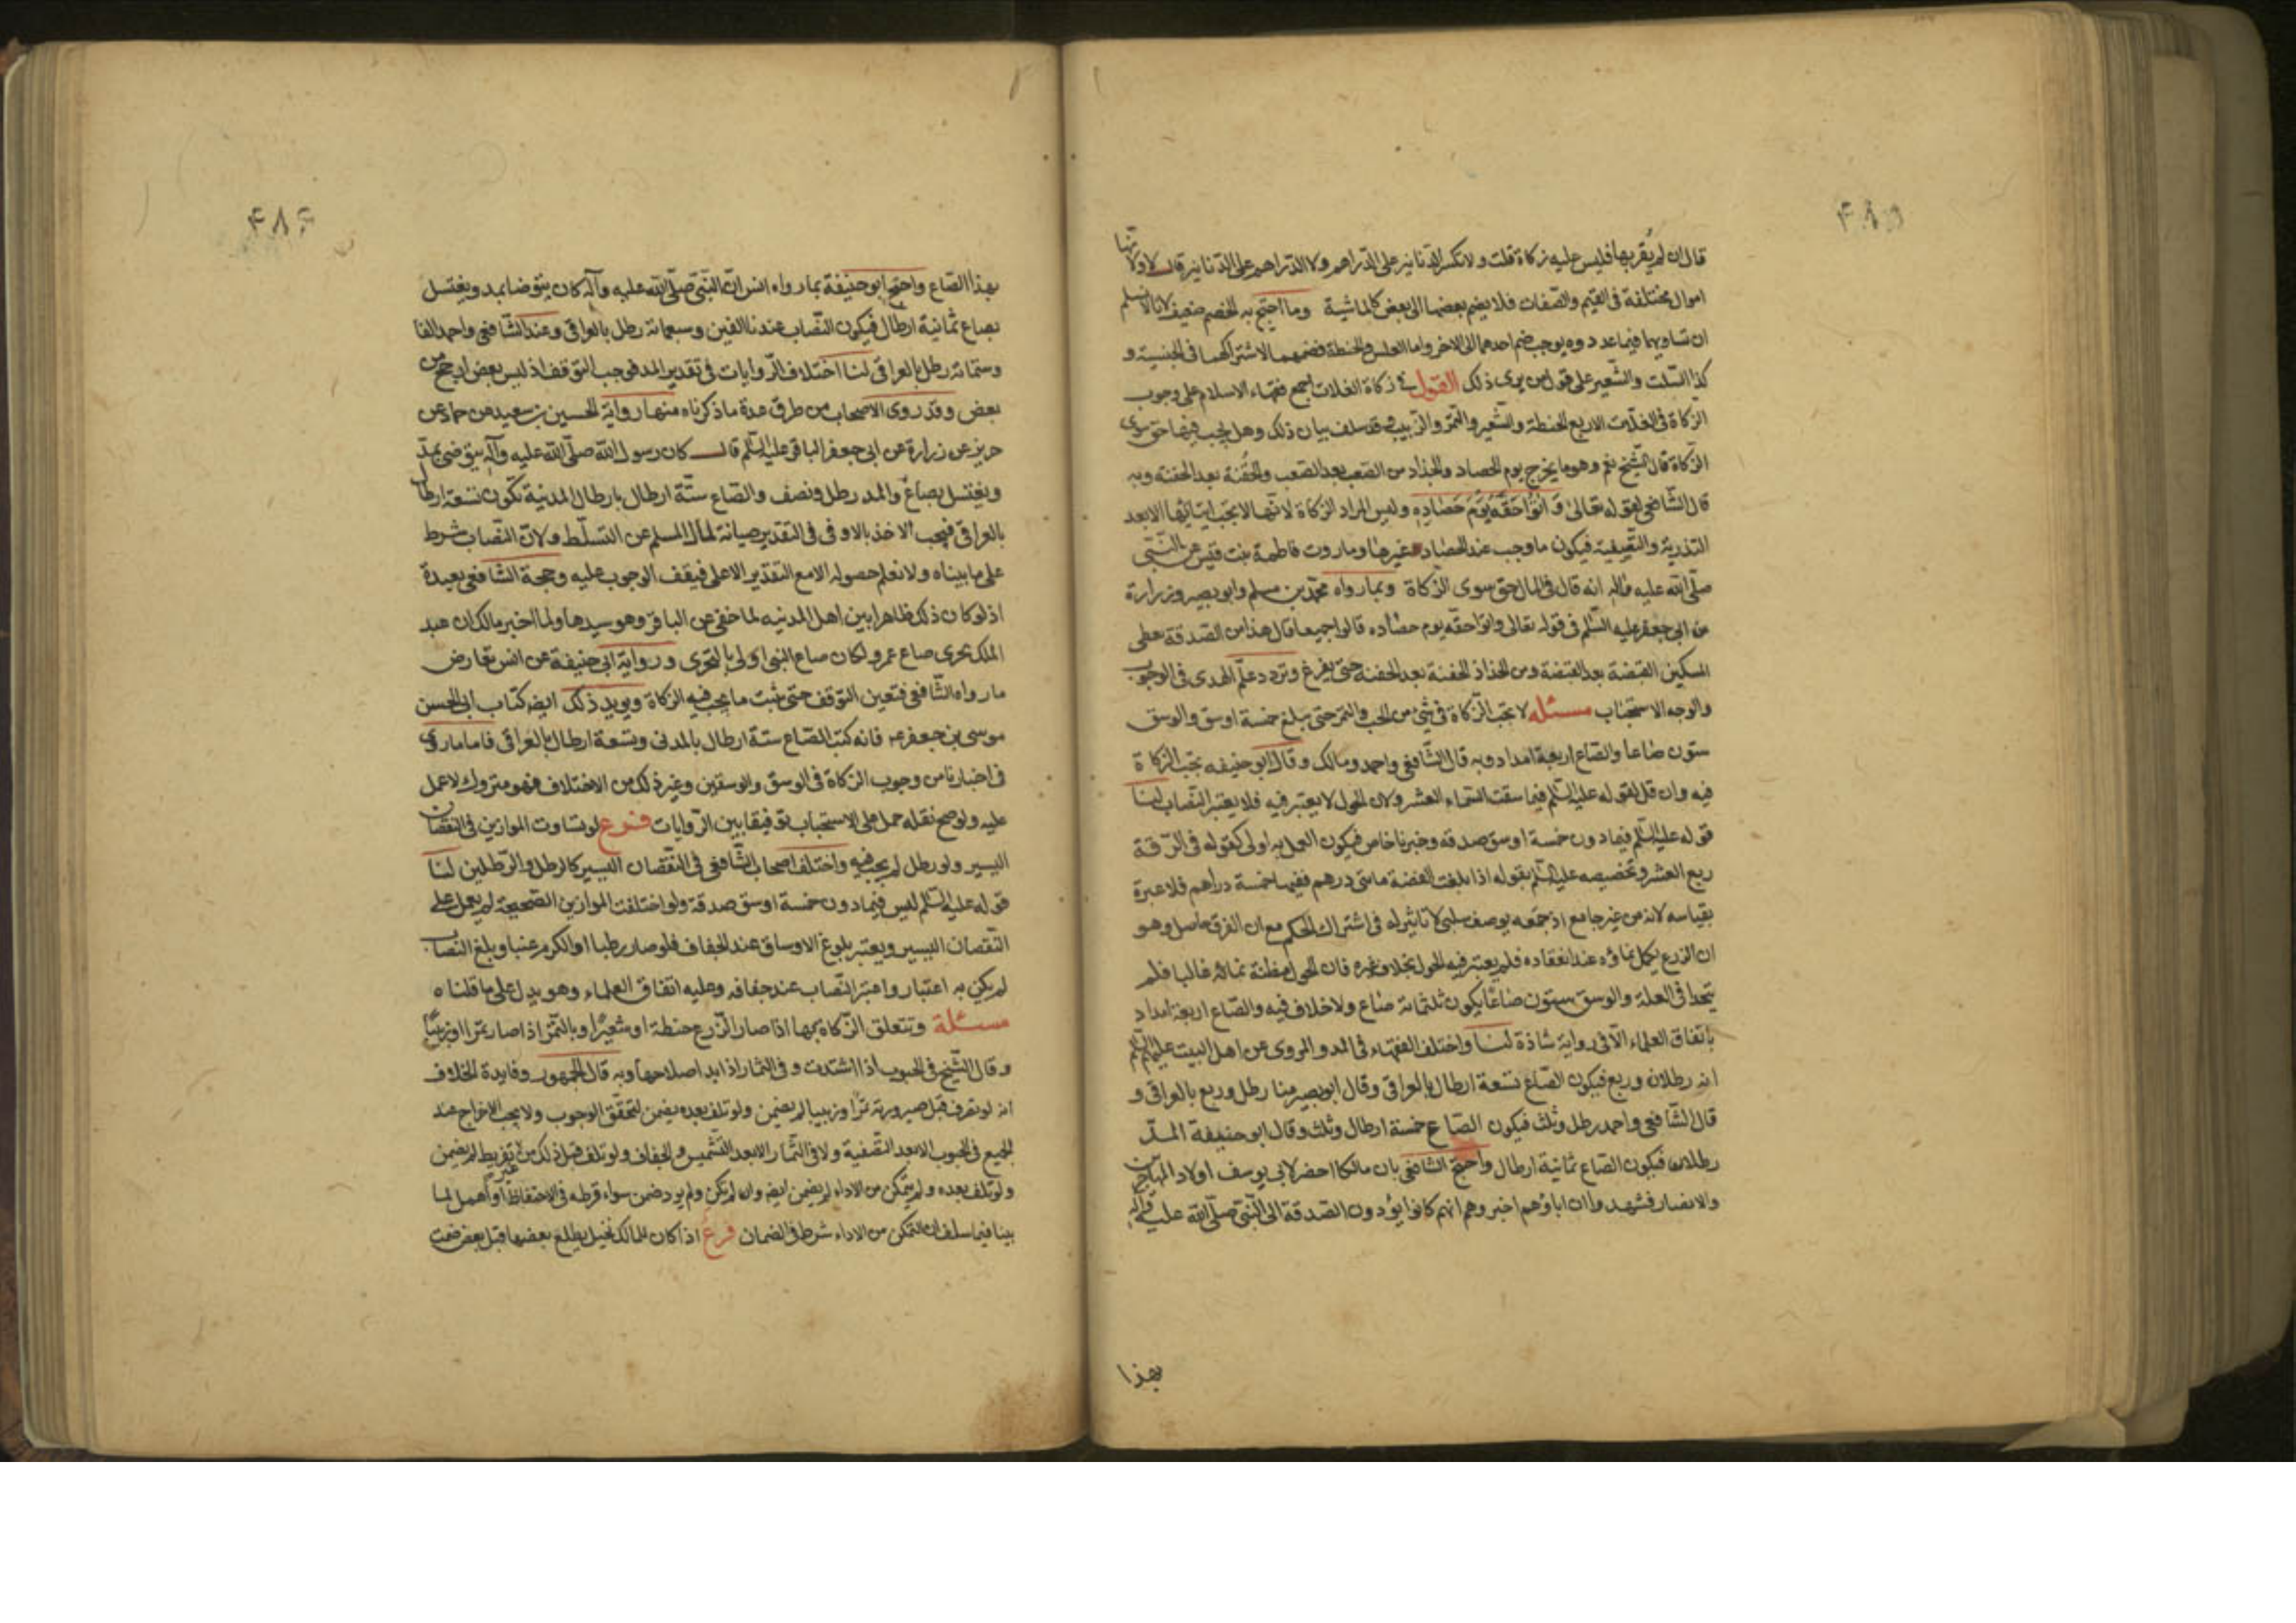 ۴۸۵
قال ان لم يُقر بها فليس عليه زكاة قلت ولا نكسر الدنانير على الدراهم ولا الدراهم على الدنانير قال لا ولانها
اموال مختلفة في القيم والصفات فلا يضم بعضها الى بعض كالماشية وما احتج به الخصم ضعيف لانا لا نسلم
ان تساويهما فيما عددوه يوجب ضم احدهما الى الاخر واما العلس والحنطة فضمهما لاشتراكهما في الجنسية و
كذا السّلت والشعير على قول من يرى ذلك القول في زكاة الغلات اجمع فقهاء الاسلام على وجوب
الزكاة في الغلات الاربع الحنطة والشعير والتمر والزبيب وقد سلف بيان ذلك وهل يجب فيها حق سوى
الزكاة قال الشيخ نعم وهو ما يخرج يوم الحصاد والجذاذ من الضغث بعد الضغث والحفنة بعد الحفنة وبه
قال الشافعي لقوله تعالى وَاتُوا حَقَّهُ يَوْمَ حَصادِهِ وليس المراد الزكاة لانها لا يجب ايتائها الا بعد
التذرية والتصفية فيكون ما وجب عند الحصاد غيرها وما روت فاطمة بنت قيس عن النبي
صلّى الله عليه واله انه قال في المال حق سوى الزكاة وبما رواه محمّد بن مسلم وابو بصير وزرارة
عن ابي جعفر عليه السّلم في قوله تعالى واتوا حقه يوم حصاده قالوا جميعا قال هذا من الصدقة يعطى
المسكين القبضة بعد القبضة ومن الجذاذ الحفنة بعد الحفنة حتى يفرغ وتردد علم الهدى في الوجوب
والوجه الاستحباب مسئله لا تجب الزكاة في شئ من الحب والتمر حتى يبلغ خمسة اوسق والوسق
ستون صاعا والصاع اربعة امداد وبه قال الشافعي واحمد ومالك وقال ابو حنيفه تجب الزكاة
فيه وان قل لقوله عليه السّلم فيما سقت السماء العشر ولان الحول لا يعتبر فيه فلا يعتبر النصاب لنا
قوله عليه السّلم فيما دون خمسة اوسق صدقة وخبرنا خاص فيكون العمل به اولى كقوله في الرّقة
ربع العشر وتخصيصه عليه السّلم بقوله اذا بلغت الفضة مائتي درهم ففيها خمسة دراهم فلا عبرة
بقياسه لانه من غير جامع اذ جمعه بوصف سلبي لا تاثير له في اشتراك الحكم مع ان الفرق حاصل وهو
ان الزرع يكمل نماؤه عند انعقاده فلم يعتبر فيه الحول بخلاف غيره فان الحول مظنة نمائه غالبا فلم
يتحدا في العلة والوسق ستون صاعًا يكون ثلثمائة صاع ولا خلاف فيه والصاع اربعة امداد
باتفاق العلماء الا في رواية شاذة لنا واختلف الفقهاء في المد والمروى عن اهل البيت عليهم السّلم
انه رطلان وربع فيكون الصاع تسعة ارطال بالعراقي وقال ابو بصير منا رطل وربع بالعراقي و
قال الشافعي واحمد رطل وثلث فيكون الصاع خمسة ارطال وثلث وقال ابو حنيفة المدّ
رطلان فيكون الصاع ثمانية ارطال واحتج الشافعي بان مالكا احضر لابي يوسف اولاد المهاجرين
والانصار فشهدوا ان اباؤهم اخبروهم انهم كانوا يؤدون الصدقة الى النبي صلّى الله عليه واله
بهذا
۴۸۶
بهذا الصاع واحتج ابو حنيفة بما رواه انس ان النبي صلّى الله عليه وآله كان يتوضا بمد ويغتسل
بصاع ثمانية ارطال فيكون النصاب عندنا الفين وسبعمائة رطل بالعراقي وعند الشافعي واحمد الفا
وستمائه رطل بالعراقي لنا اختلاف الروايات في تقدير المد فوجب التوقف اذ ليس بعض ارجح من
بعض وقد روى الاصحاب من طرق عدة ما ذكرناه منها رواية الحسين بن سعيد عن حماد عن
حريز عن زرارة عن ابي جعفر الباقر عليه السّلم قال كان رسول الله صلّى الله عليه وآله يتوضى بمدّ
ويغتسل بصاع والمد رطل ونصف والصاع ستّة ارطال بارطال المدنية تكون تسعة ارطال
بالعراقي فيجب الاخذ بالاوفى في التقدير صيانة لمال المسلم عن التسلّط ولان النصاب شرط
على ما بيناه ولا نعلم حصوله الا مع التقدير الاعلى فيقف الوجوب عليه وحجة الشافعي بعيدة
اذ لو كان ذلك ظاهرا بين اهل المدنيه لما خفى عن الباقر وهو سيدها ولما اخبر مالك ان عبد
الملك تحرى صاع عمر ولكان صاع النبي اولى بالتحرى ورواية ابي حنيفة عن انس تعارض
ما رواه الشافعي فتعين التوقف حتى يثبت ما يجب فيه الزكاة ويويد ذلك ايضا كتاب ابي الحسن
موسى بن جعفر عه فانه كتب الصاع ستة ارطال بالمدني وتسعة ارطال بالعراقي فاما ما روى
في اخبارنا من وجوب الزكاة في الوسق والوسقين وغير ذلك من الاختلاف فهو متروك لا عمل
عليه ولو صح نقله حمل على الاستحباب توفيقا بين الروايات فرع لو تساوت الموازين في النقصان
اليسير ولو رطل لم يجب فيه واختلف اصحاب الشافعي في النقصان اليسير كالرطل والرطلين لنا
قوله عليه السّلم ليس فيما دون خمسة اوسق صدقة ولو اختلفت الموازين الصحيحة لم يعمل على
النقصان اليسير ويعتبر بلوغ الاوساق عند الجفاف فلو صار رطبا او الكرم عنبا وبلغ النصاب
لم يكن به اعتبار واعتبر النصاب عند جفافه وعليه اتفاق العلماء وهو يدل على ما قلناه
مسئلة وتتعلق الزكاة بها اذا صار الزرع حنطة او شعيرًا وبالتمر اذا صار تمرا او زبيبًا
وقال الشيخ في الحبوب اذا اشتدت وفي الثمار اذا بدا صلاحها وبه قال الجمهور وفايدة الخلاف
انه لو تصرف قبل صيرورته تمرا وزبيبا لم يضمن ولو تلف بعده يضمن لتحقق الوجوب ولا يجب الاخراج عند
الجميع في الحبوب الا بعد التصفية ولا في الثمار الا بعد التشميس والجفاف ولو تلف قبل ذلك من غير تفريط لم يضمن
ولو تلف بعده ولم يتمكن من الاداء لم يضمن ايضا وان لم تكن ولم يود ضمن سواء فرط في الاحتفاظ او اهمل لما
بينا فيما سلف ان التمكن من الاداء شرط في الضمان فرع اذا كان للمالك نخيل يطلع بعضها قبل بعض ضمت